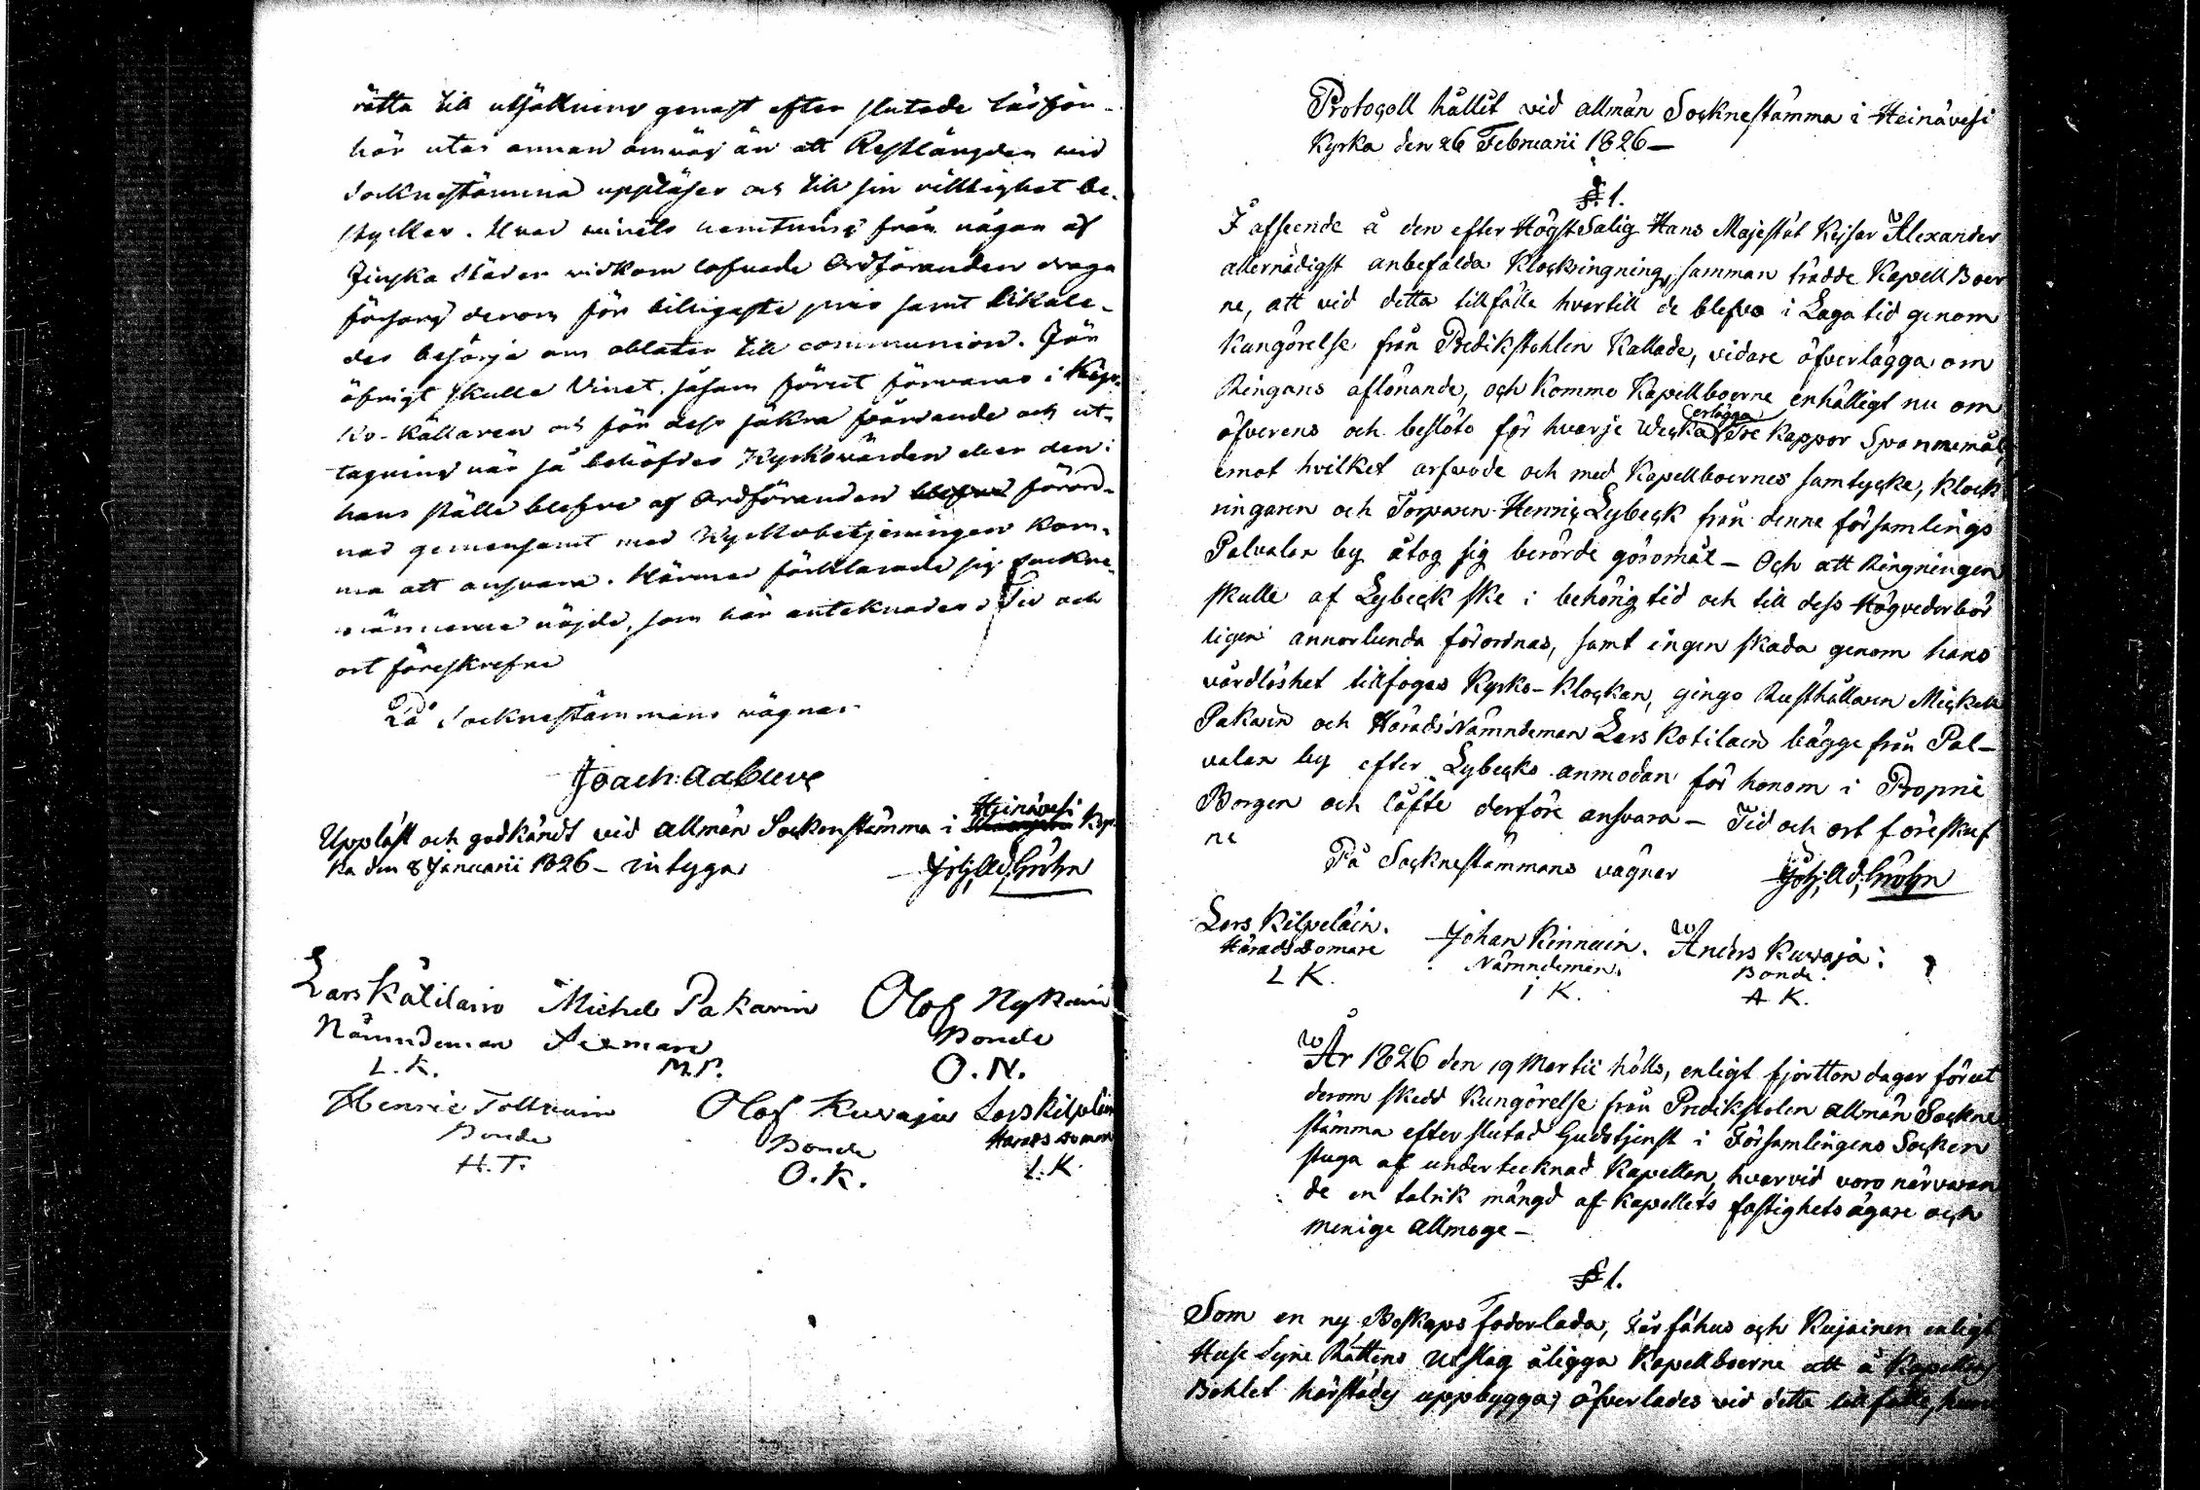 rätta till utsättning genast efter slutade läsför-
hör utan annan omväg än att Restlängden vid
Socknestämma uppläses och till sin riktighet be-
styrkes. Hvad vinets hemtning från någon af
Finska städer vidkom lofvade Ordföranden draga
försorg derom för billigaste pris samt likale-
des besörja om oblater till communion. För
öfrigt skulle Vinet, såsom förut förvaras i Kyr-
ko-källaren och för dess säkra förvarande och ut-
tagning när så behöfdes Kyrkovärden eller den i
hans ställe blefve af Ordföranden förord-
nad gemensamt med Kyrkobetjeningen kom-
ma att ansvara. Härmed förklarade sig Sockne-
männerne nöjde, som här antecknades. Tid och
ort föreskrefne
På Socknestämmans vägnar
Joach: Ad Cleve
Heinävesi
Uppläst och godkändt vid allmän Sockenstämma i Kyr
ka den 8 Januarii 1826 – intygar Joh: Ad: Gröhn
Lars Kåtilain Michel Pakarin Olof Nykain
Nämndeman Sexman Bonde
L. K. M. P. O. N.
Henric Tollvain Olof Kuvaja Lars Kilpläin
Bonde Bonde Häradsdomare
H. T. O. K. L. K.
Protocoll hållit vid allmän Socknestämma i Heinävesi
Kyrka den 26 Februarii 1826 —
§ 1.
I afseende å den efter Högst Salig Hans Majestät Kejsar Alexander
allernådigst anbefalda Klockringning, samman trädde Kapell Boer
ne, att vid detta tillfälle hvartill de blefvo i Laga tid genom
Kungörelse från Predikstohlen Kallade, vidare öfverlägga om
Ringans aflönande, och Kommo Kapellboerne enhälligt nu om
öfverens och beslöto för hvarje Wecka erlägga Tre Kappor Spannemål,
emot hvilket arfvode och med Kapellboernes samtycke, klock
ringaren och Torparen Henric Lybeck från denne församlings
Palvalax by åtog sig berörde göromål – Och att Ringningen
skulle af Lybeck ske i behörig tid och till dess Högvederbör
ligen annorlunda förordnas, samt ingen skada genom hans
vårdlöshet tillfogas Kyrko-Klockan, gingo Rusthållaren Mickel
Pakain och Härads Nämndeman Lars Kotilain bägge från Pal-
valax by efter Lybecks anmodan för honom i Proprie
Borgen och löfte derföre ansvara – Tid och ort föreskref
ne
På Socknestämmans vägnar Joh: Ad: Gröhn
Lars Kilpeläin. Johan Kinnuin. Anders Kuvaja:
Häradsdomare Nämndeman. Bonde.
L K. I K. A K.
År 1826 den 19 Martii hölls, enligt fjortton dagar förut
derom skedd Kungörelse från Predikstolen allmän Sockne
stämma efter slutad Gudstjenst i Församlingens Socken
stuga af undertecknad Kapellan, hvarvid voro närvaran
de en talrik mängd af Kapellets fastighetsägare och
menige allmoge –
§ 1.
Som en ny Boskaps foderlada, Fårfähus och Kujainen enligt
Huse Syne Rättens Utslag åligga Kapellboerne att å Kapellans
Bohlet härstädes uppbygga; öfverlades vid detta tillfälle, huru